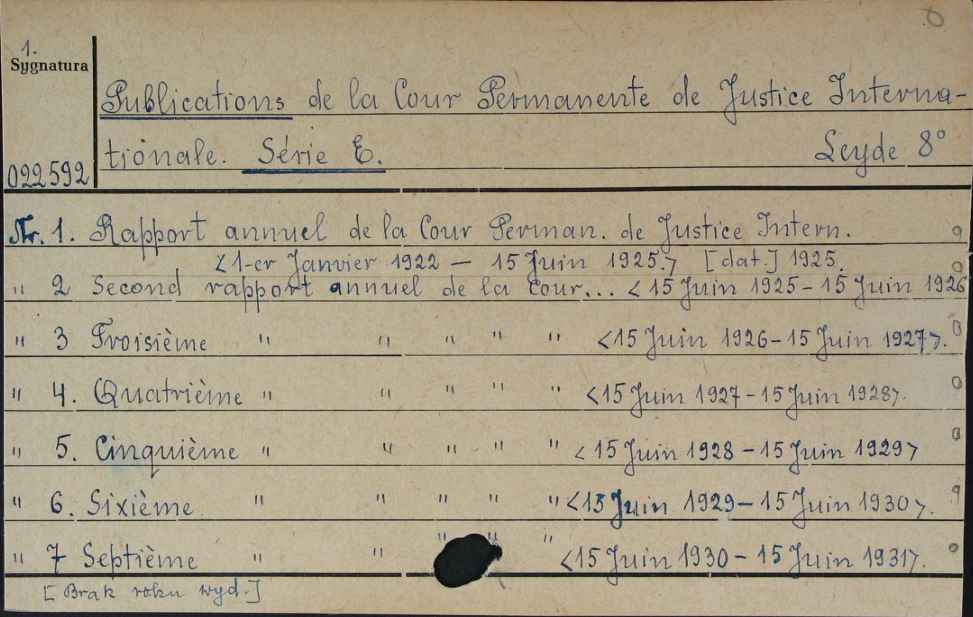 1.
Sygnatura
Publications de la Cour Permanente de Justice Interna-
tionale. Série E. Leyde 8°
022592
Nr. 1. Rapport annuel de la Cour Perman. de Justice Intern.
<1-er Janvier 1922 — 15 Juin 1925.> [dat.] 1925.
" 2 Second rapport annuel de la Cour... <15 Juin 1925 - 15 Juin 1926
" 3 Troisième " " " " " <15 Juin 1926 - 15 Juin 1927>.
" 4. Quatrième " " " " " <15 Juin 1927 - 15 Juin 1928>.
" 5. Cinquième " " " " " <15 Juin 1928 - 15 Juin 1929>
" 6. Sixième " " " " " <15 Juin 1929 - 15 Juin 1930>.
" 7 Septième " " " " " <15 Juin 1930 - 15 Juin 1931>.
[Brak roku wyd.]